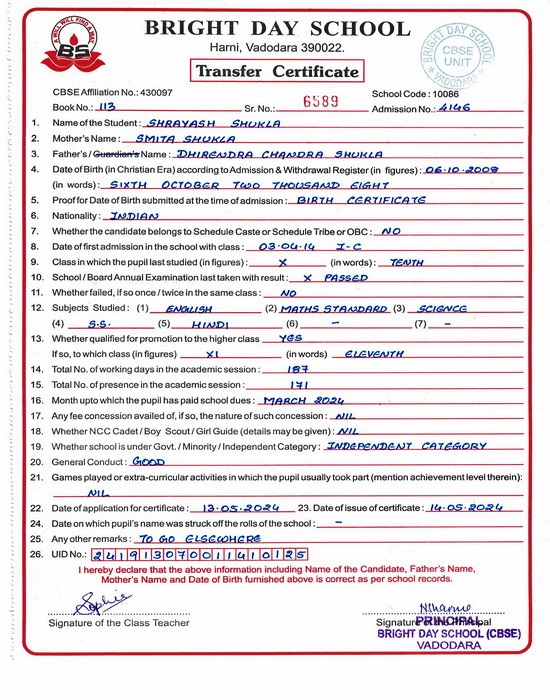 A WILL WILL FIND A WAY
BS
BRIGHT DAY SCHOOL
Harni, Vadodara 390022.
BRIGHT DAY SCHOOL
CBSE
UNIT
VADODARA
Transfer Certificate
CBSE Affiliation No.: 430097 School Code : 10086
Book No.: 113 Sr. No.: 6589 Admission No.: 4146
1. Name of the Student : SHRAYASH SHUKLA
2. Mother's Name : SMITA SHUKLA
3. Father's / Guardian's Name : DHIRENDRA CHANDRA SHUKLA
4. Date of Birth (in Christian Era) according to Admission & Withdrawal Register (in figures) : 06.10.2008
(in words) : SIXTH OCTOBER TWO THOUSAND EIGHT
5. Proof for Date of Birth submitted at the time of admission : BIRTH CERTIFICATE
6. Nationality : INDIAN
7. Whether the candidate belongs to Schedule Caste or Schedule Tribe or OBC : NO
8. Date of first admission in the school with class : 03.04.14 I-C
9. Class in which the pupil last studied (in figures) : X (in words) : TENTH
10. School / Board Annual Examination last taken with result : X PASSED
11. Whether failed, if so once / twice in the same class : NO
12. Subjects Studied : (1) ENGLISH (2) MATHS STANDARD (3) SCIENCE
(4) S.S. (5) HINDI (6) – (7) –
13. Whether qualified for promotion to the higher class YES
If so, to which class (in figures) XI (in words) ELEVENTH
14. Total No. of working days in the academic session : 187
15. Total No. of presence in the academic session : 171
16. Month upto which the pupil has paid school dues : MARCH 2024
17. Any fee concession availed of, if so, the nature of such concession : NIL
18. Whether NCC Cadet / Boy Scout / Girl Guide (details may be given) : NIL
19. Whether school is under Govt. / Minority / Independent Category : INDEPENDENT CATEGORY
20. General Conduct : GOOD
21. Games played or extra-curricular activities in which the pupil usually took part (mention achievement level therein) :
NIL
22. Date of application for certificate : 13.05.2024 23. Date of issue of certificate : 14.05.2024
24. Date on which pupil's name was struck off the rolls of the school : –
25. Any other remarks : TO GO ELSEWHERE
26. UID No.: 241913070011410125
I hereby declare that the above information including Name of the Candidate, Father's Name,
Mother's Name and Date of Birth furnished above is correct as per school records.
Sophie
Signature of the Class Teacher Signature of the Principal
PRINCIPAL
BRIGHT DAY SCHOOL (CBSE)
VADODARA